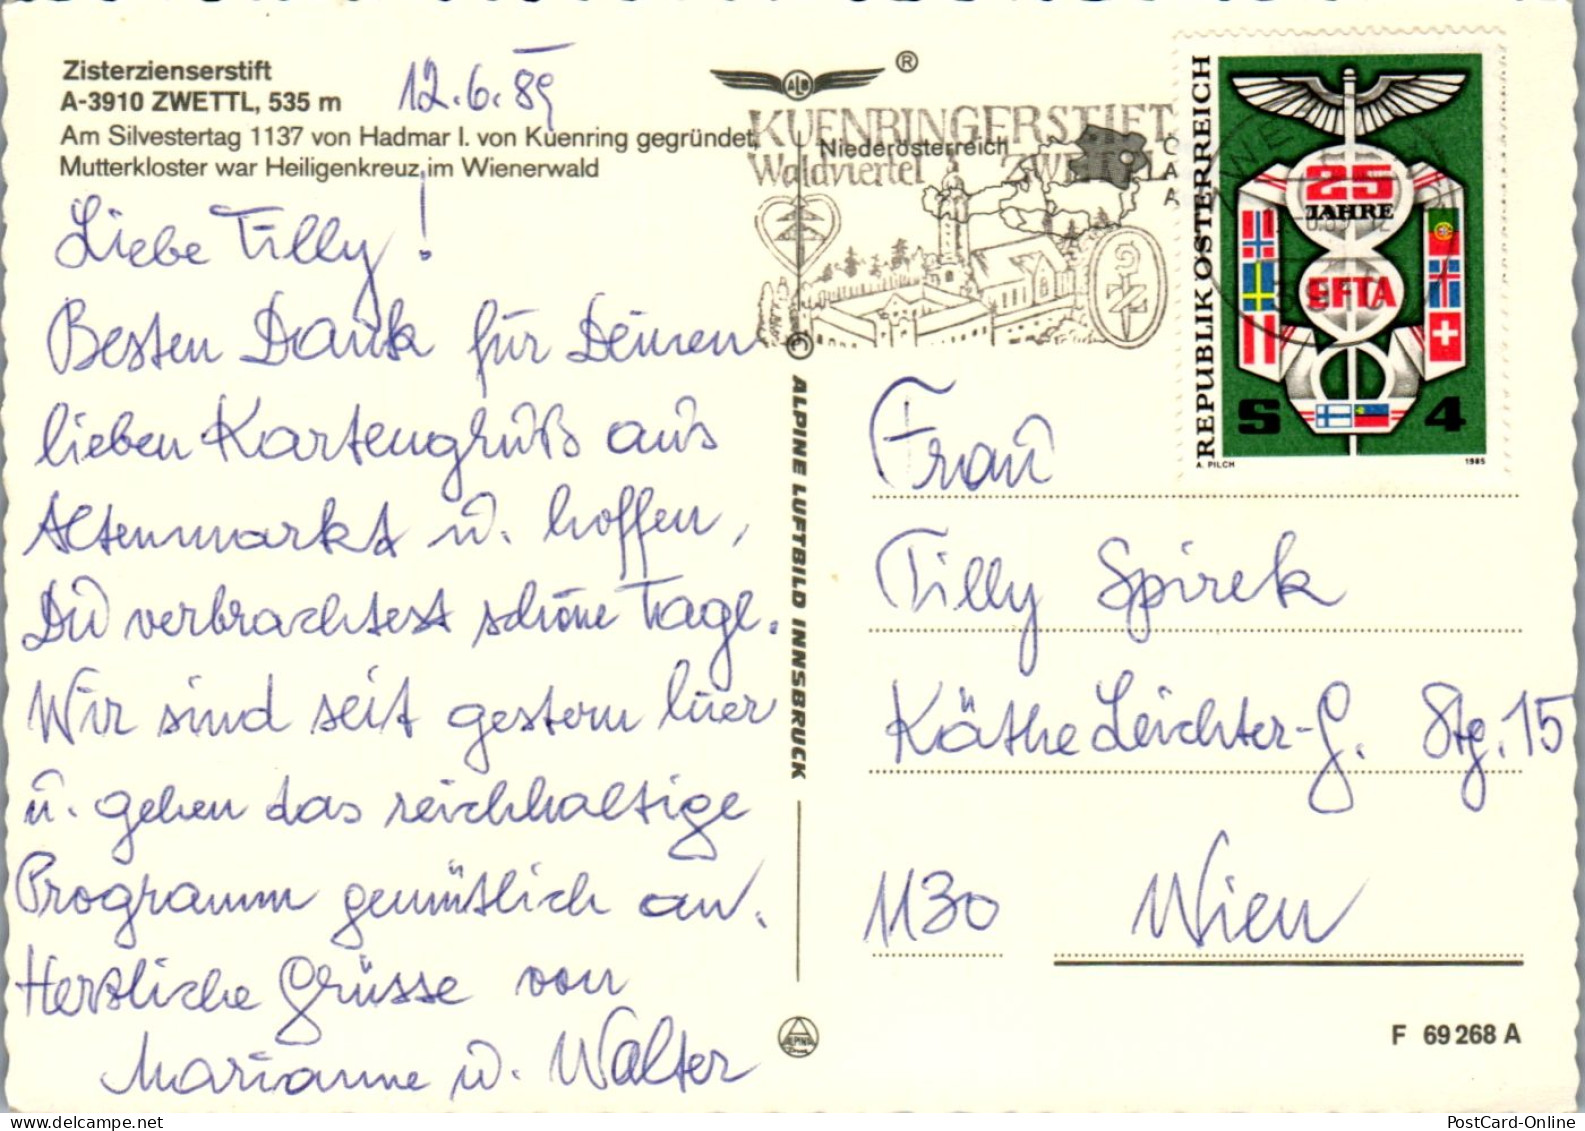 Zisterzienserstift
A-3910 ZWETTL, 535 m
12.6.89
Am Silvestertag 1137 von Hadmar I. von Kuenring gegründet,
Mutterkloster war Heiligenkreuz im Wienerwald
Liebe Tilly!
Besten Dank für Deinen
lieben Kartengruß aus
Altenmarkt u. hoffen,
Du verbrachtest schöne Tage.
Wir sind seit gestern hier
u. gehen das reichhaltige
Programm gemütlich an.
Herzliche Grüsse von
Marianne u. Walter
ALB
®
KUENRINGERSTIFT
Niederösterreich
Waldviertel ZWETTL
© ALPINE LUFTBILD INNSBRUCK
ALPINE
REPUBLIK ÖSTERREICH
25
JAHRE
EFTA
S 4
A. PILCH
1985
Frau
Tilly Spirek
Käthe Leichter-G. Stg. 15
1130 Wien
F 69 268 A
PostCard-Online.com
PostCard-Online